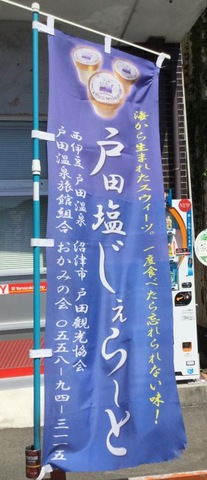 海から生まれたスウィーツ。一度食べたら忘れられない味!
戸田塩じぇらーと
西伊豆 戸田温泉 沼津市 戸田観光協会
戸田温泉旅館組合 おかみの会 〇五五八-九四-三一一五